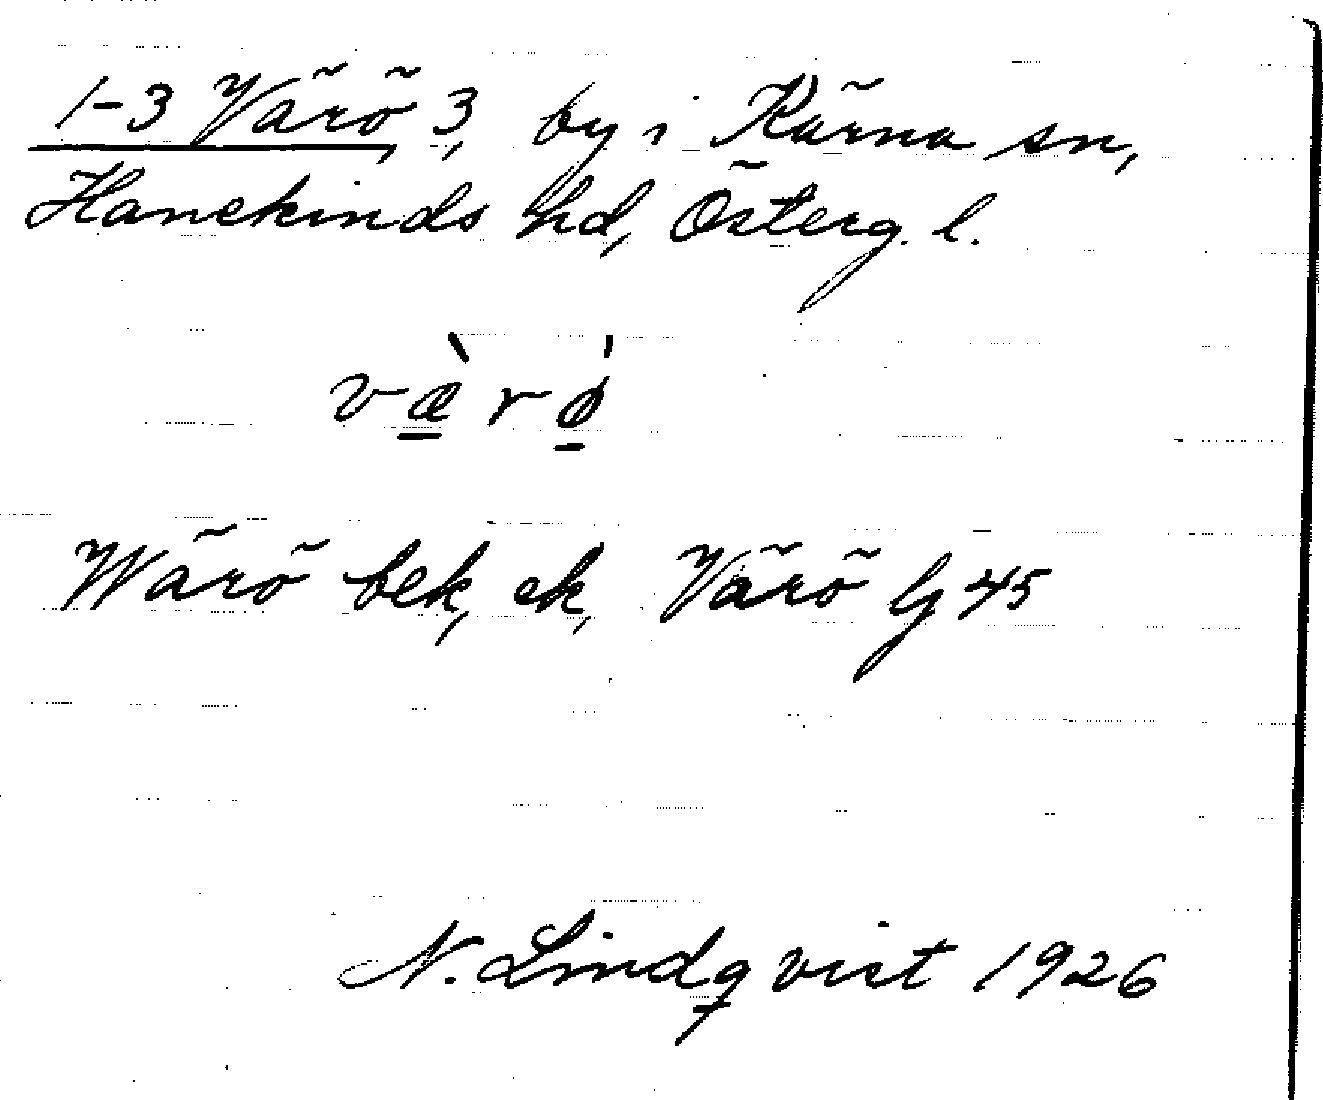 1-3 Värö, 3, by i Kärna sn,
Hanekinds hd, Österg. l.
væ̀rǿ
Wärö bek, ek, Värö G 45
N. Lindqvist 1926